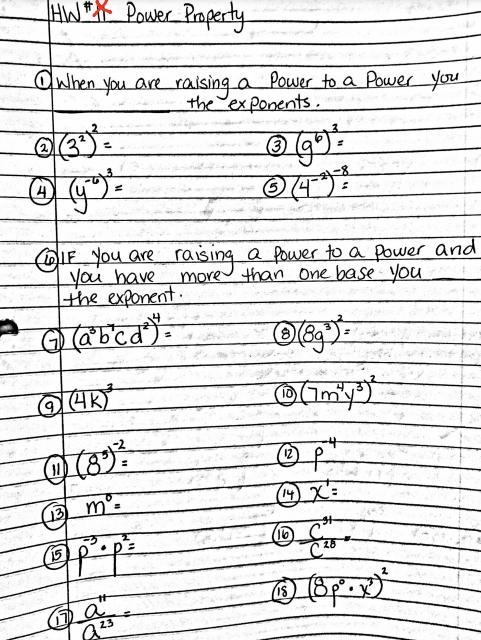 HW #11 Power Property
① When you are raising a Power to a Power you
____________ the exponents.
② (3²)² =
③ (g⁶)³ =
④ (y⁻⁶)³ =
⑤ (4⁻²)⁻⁸ =
⑥ IF you are raising a Power to a Power and
you have more than one base you ____
the exponent.
⑦ (a³b⁴cd²)⁴ =
⑧ (8g³)² =
⑨ (4k)³
⑩ (7m⁴y³)²
⑪ (8⁵)⁻² =
⑫ p⁻⁴
⑬ m⁰ =
⑭ x¹ =
⑮ p⁻³ · p² =
⑯ c³¹/c²⁸ =
⑰ a¹¹/a²³ =
⑱ (8p⁰ · x³)²